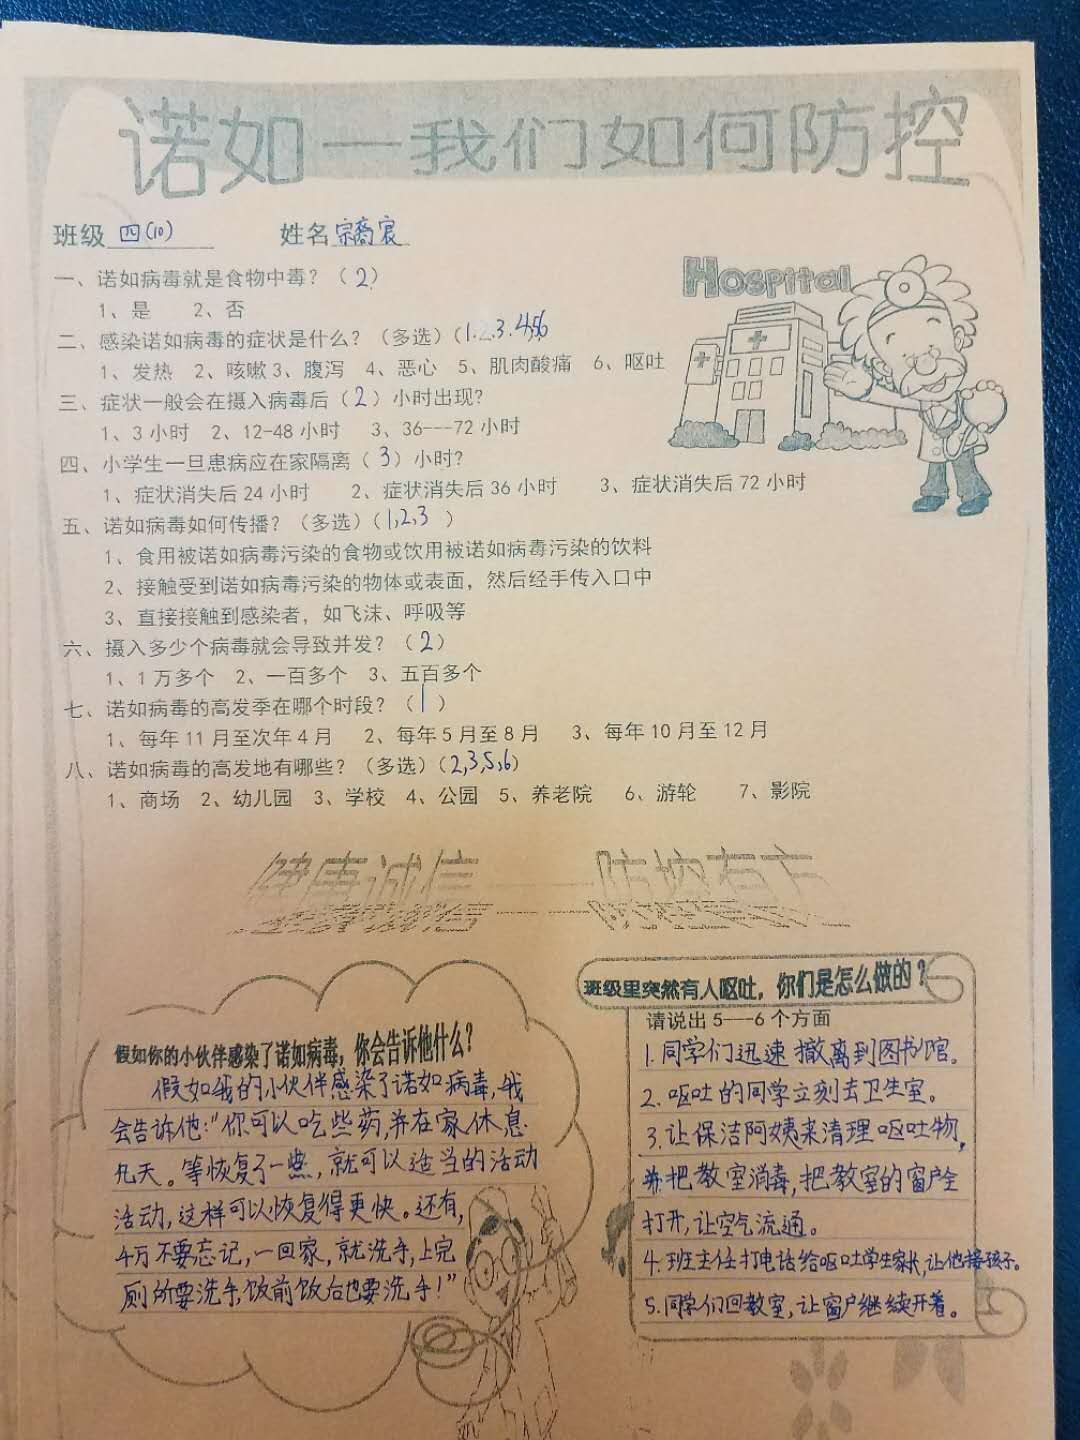 诺如—我们如何防控
班级 四(10) 姓名
一、诺如病毒就是食物中毒？（2）
1、是 2、否
二、感染诺如病毒的症状是什么？（多选）（1.2.3.4,5,6
1、发热 2、咳嗽 3、腹泻 4、恶心 5、肌肉酸痛 6、呕吐
三、症状一般会在摄入病毒后（2）小时出现？
1、3小时 2、12-48小时 3、36---72小时
四、小学生一旦患病应在家隔离（3）小时？
1、症状消失后24小时 2、症状消失后36小时 3、症状消失后72小时
五、诺如病毒如何传播？（多选）（1,2,3 ）
1、食用被诺如病毒污染的食物或饮用被诺如病毒污染的饮料
2、接触受到诺如病毒污染的物体或表面，然后经手传入口中
3、直接接触到感染者，如飞沫、呼吸等
六、摄入多少个病毒就会导致并发？（2）
1、1万多个 2、一百多个 3、五百多个
七、诺如病毒的高发季在哪个时段？（1）
1、每年11月至次年4月 2、每年5月至8月 3、每年10月至12月
八、诺如病毒的高发地有哪些？（多选）（2,3,5,6）
1、商场 2、幼儿园 3、学校 4、公园 5、养老院 6、游轮 7、影院
Hospital
健康诚信——防控有方
假如你的小伙伴感染了诺如病毒，你会告诉他什么？
假如我的小伙伴感染了诺如病毒,我
会告诉他:“你可以吃些药,并在家休息
几天。等恢复了一些,就可以适当的活动
活动,这样可以恢复得更快。还有,
千万不要忘记,一回家,就洗手,上完
厕所要洗手,饭前饭后也要洗手!”
班级里突然有人呕吐，你们是怎么做的？
请说出5---6个方面
1.同学们迅速撤离到图书馆。
2.呕吐的同学立刻去卫生室。
3.让保洁阿姨来清理呕吐物,
并把教室消毒,把教室的窗户全
打开,让空气流通。
4.班主任打电话给呕吐学生家长,让他接孩子。
5.同学们回教室,让窗户继续开着。